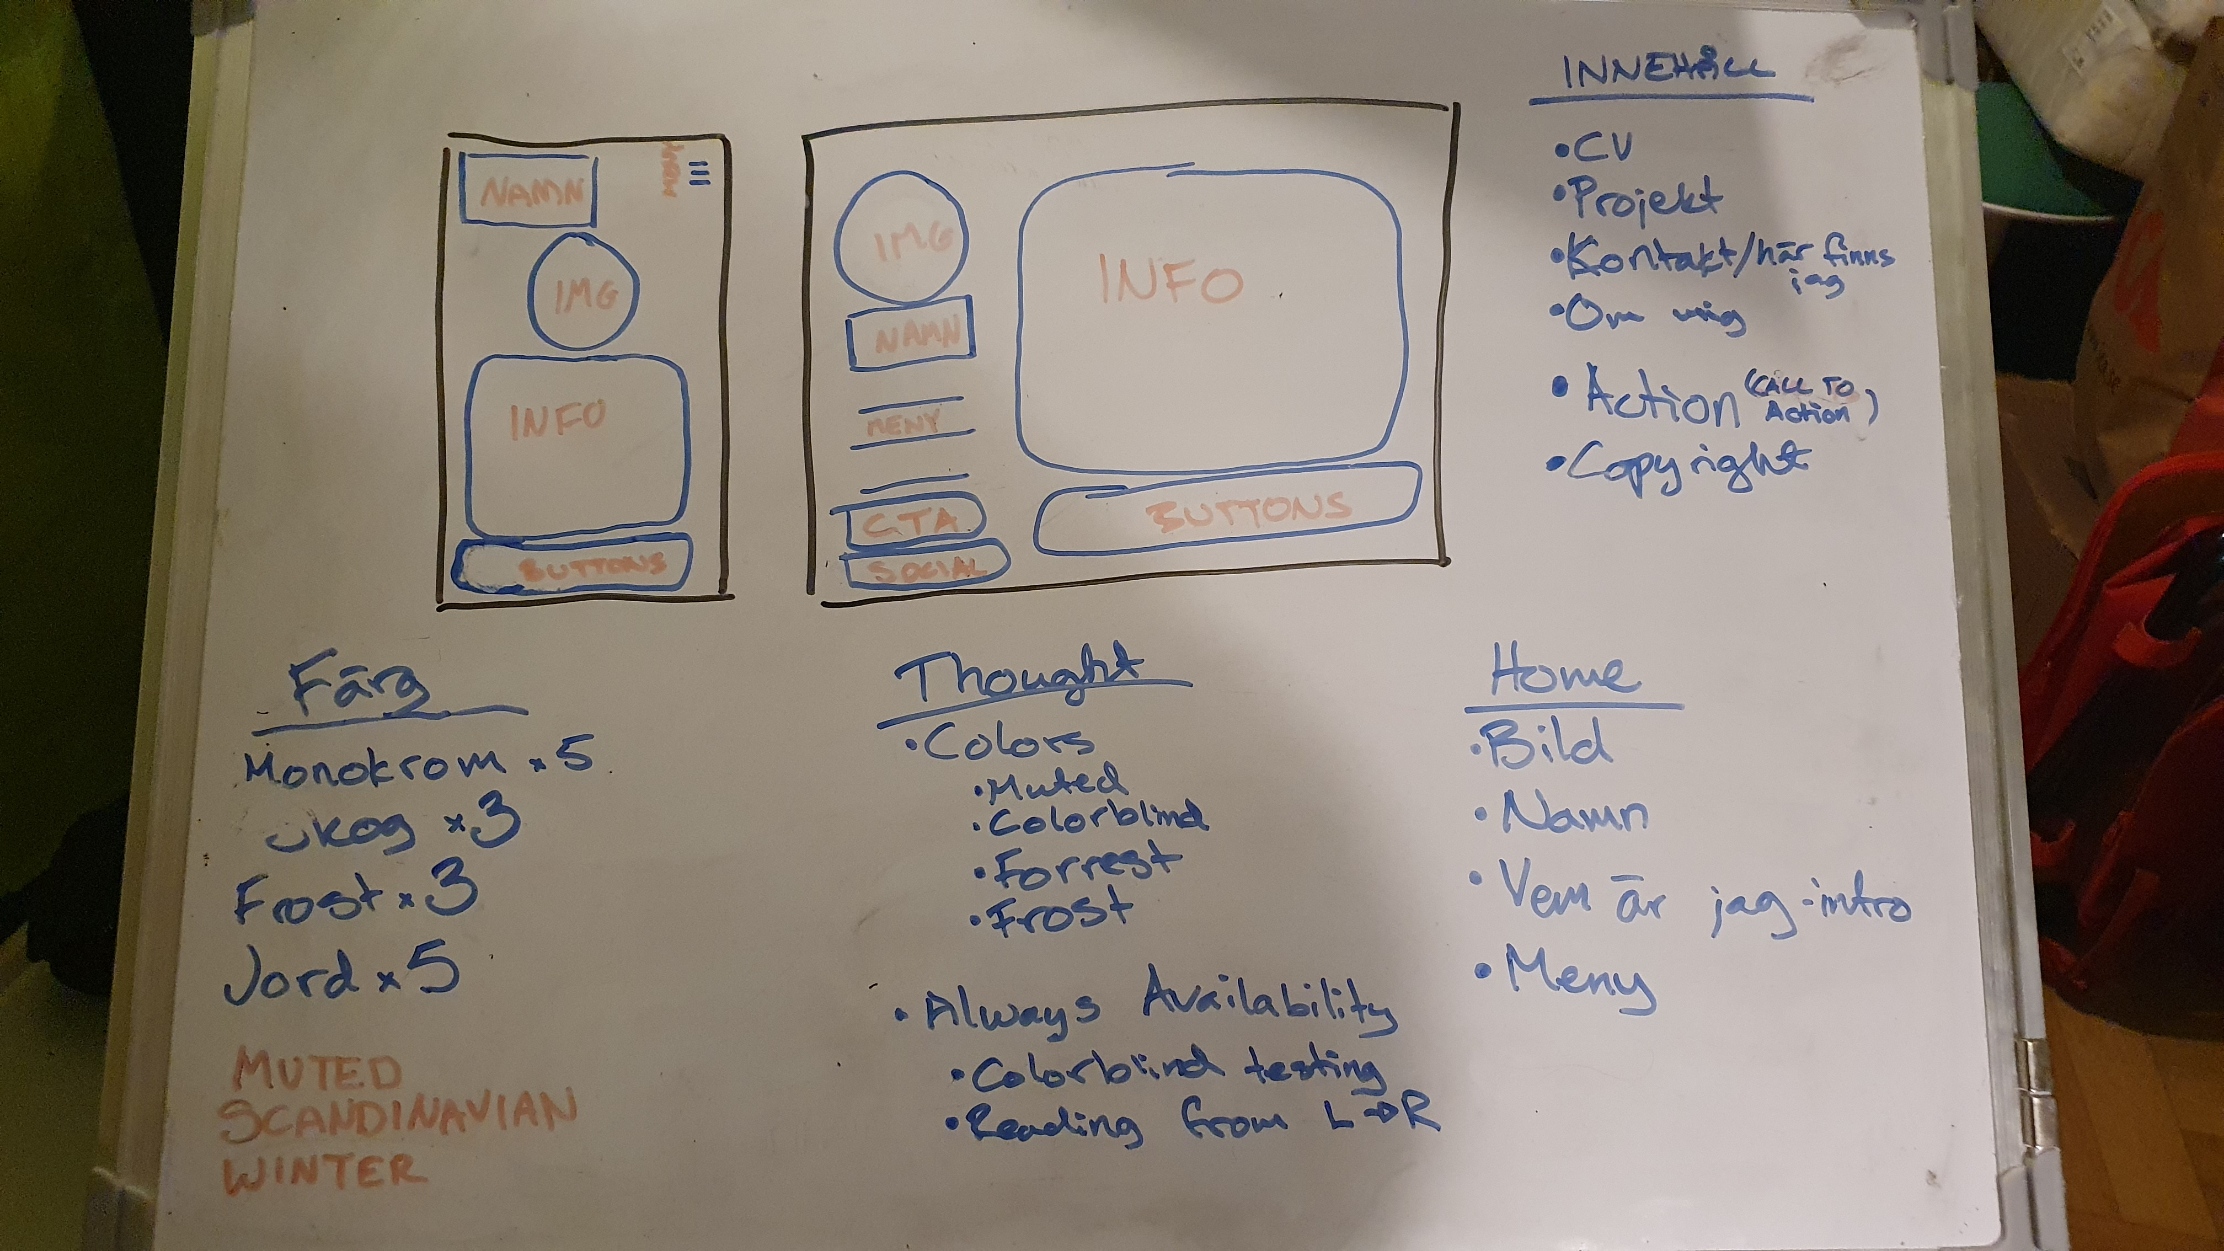 NAMN
MENY
IMG
INFO
BUTTONS
IMG
NAMN
MENY
CTA
SOCIAL
INFO
BUTTONS
INNEHÅLL
•CV
•Projekt
•Kontakt/här finns
jag
•Om mig
•Action (CALL TO
Action)
•Copyright
Färg
Monokrom x 5
Skog x3
Frost x 3
Jord x 5
MUTED
SCANDINAVIAN
WINTER
Thought
•Colors
•Muted
•Colorblind
•Forrest
•Frost
•Always Availability
•Colorblind testing
•Reading from L→R
Home
•Bild
•Namn
•Vem är jag-intro
•Meny